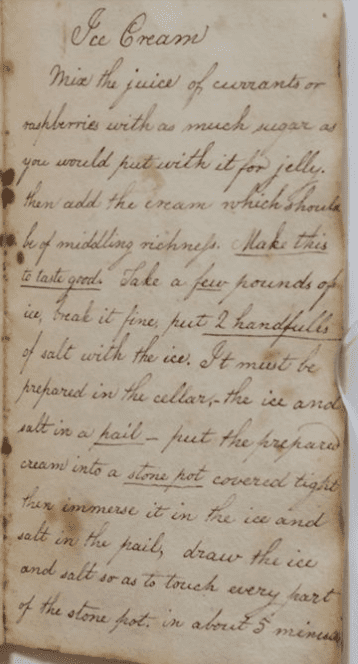 Ice Cream
Mix the juice of currants or
raspberries with as much sugar as
you would put with it for jelly.
then add the cream which should
be of middling richness. Make this
to taste good. Take a few pounds of
ice, break it fine, put 2 handfulls
of salt with the ice. It must be
prepared in the cellar,- the ice and
salt in a pail – put the prepared
cream into a stone pot covered tight
then immerse it in the ice and
salt in the pail, draw the ice
and salt so as to touch every part
of the stone pot. in about 5 minutes